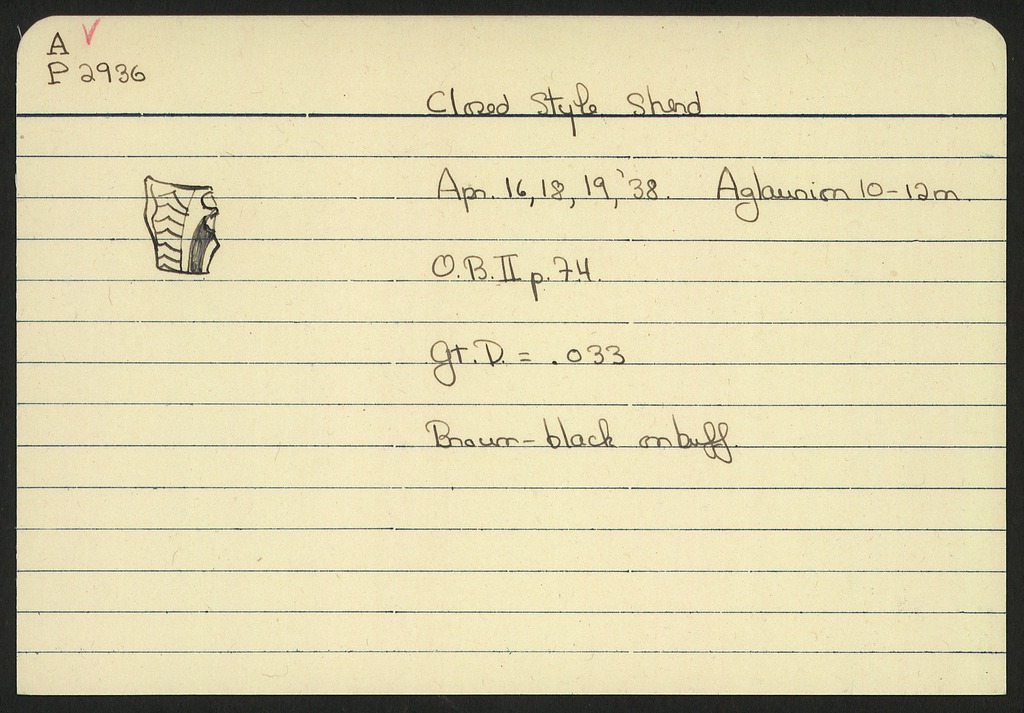 A
P 2936
Closed Style Sherd
Apr. 16, 18, 19, '38. Aglaurion 10-12m.
O.B. II p. 74.
Gt. D. = .033
Brown-black on buff.